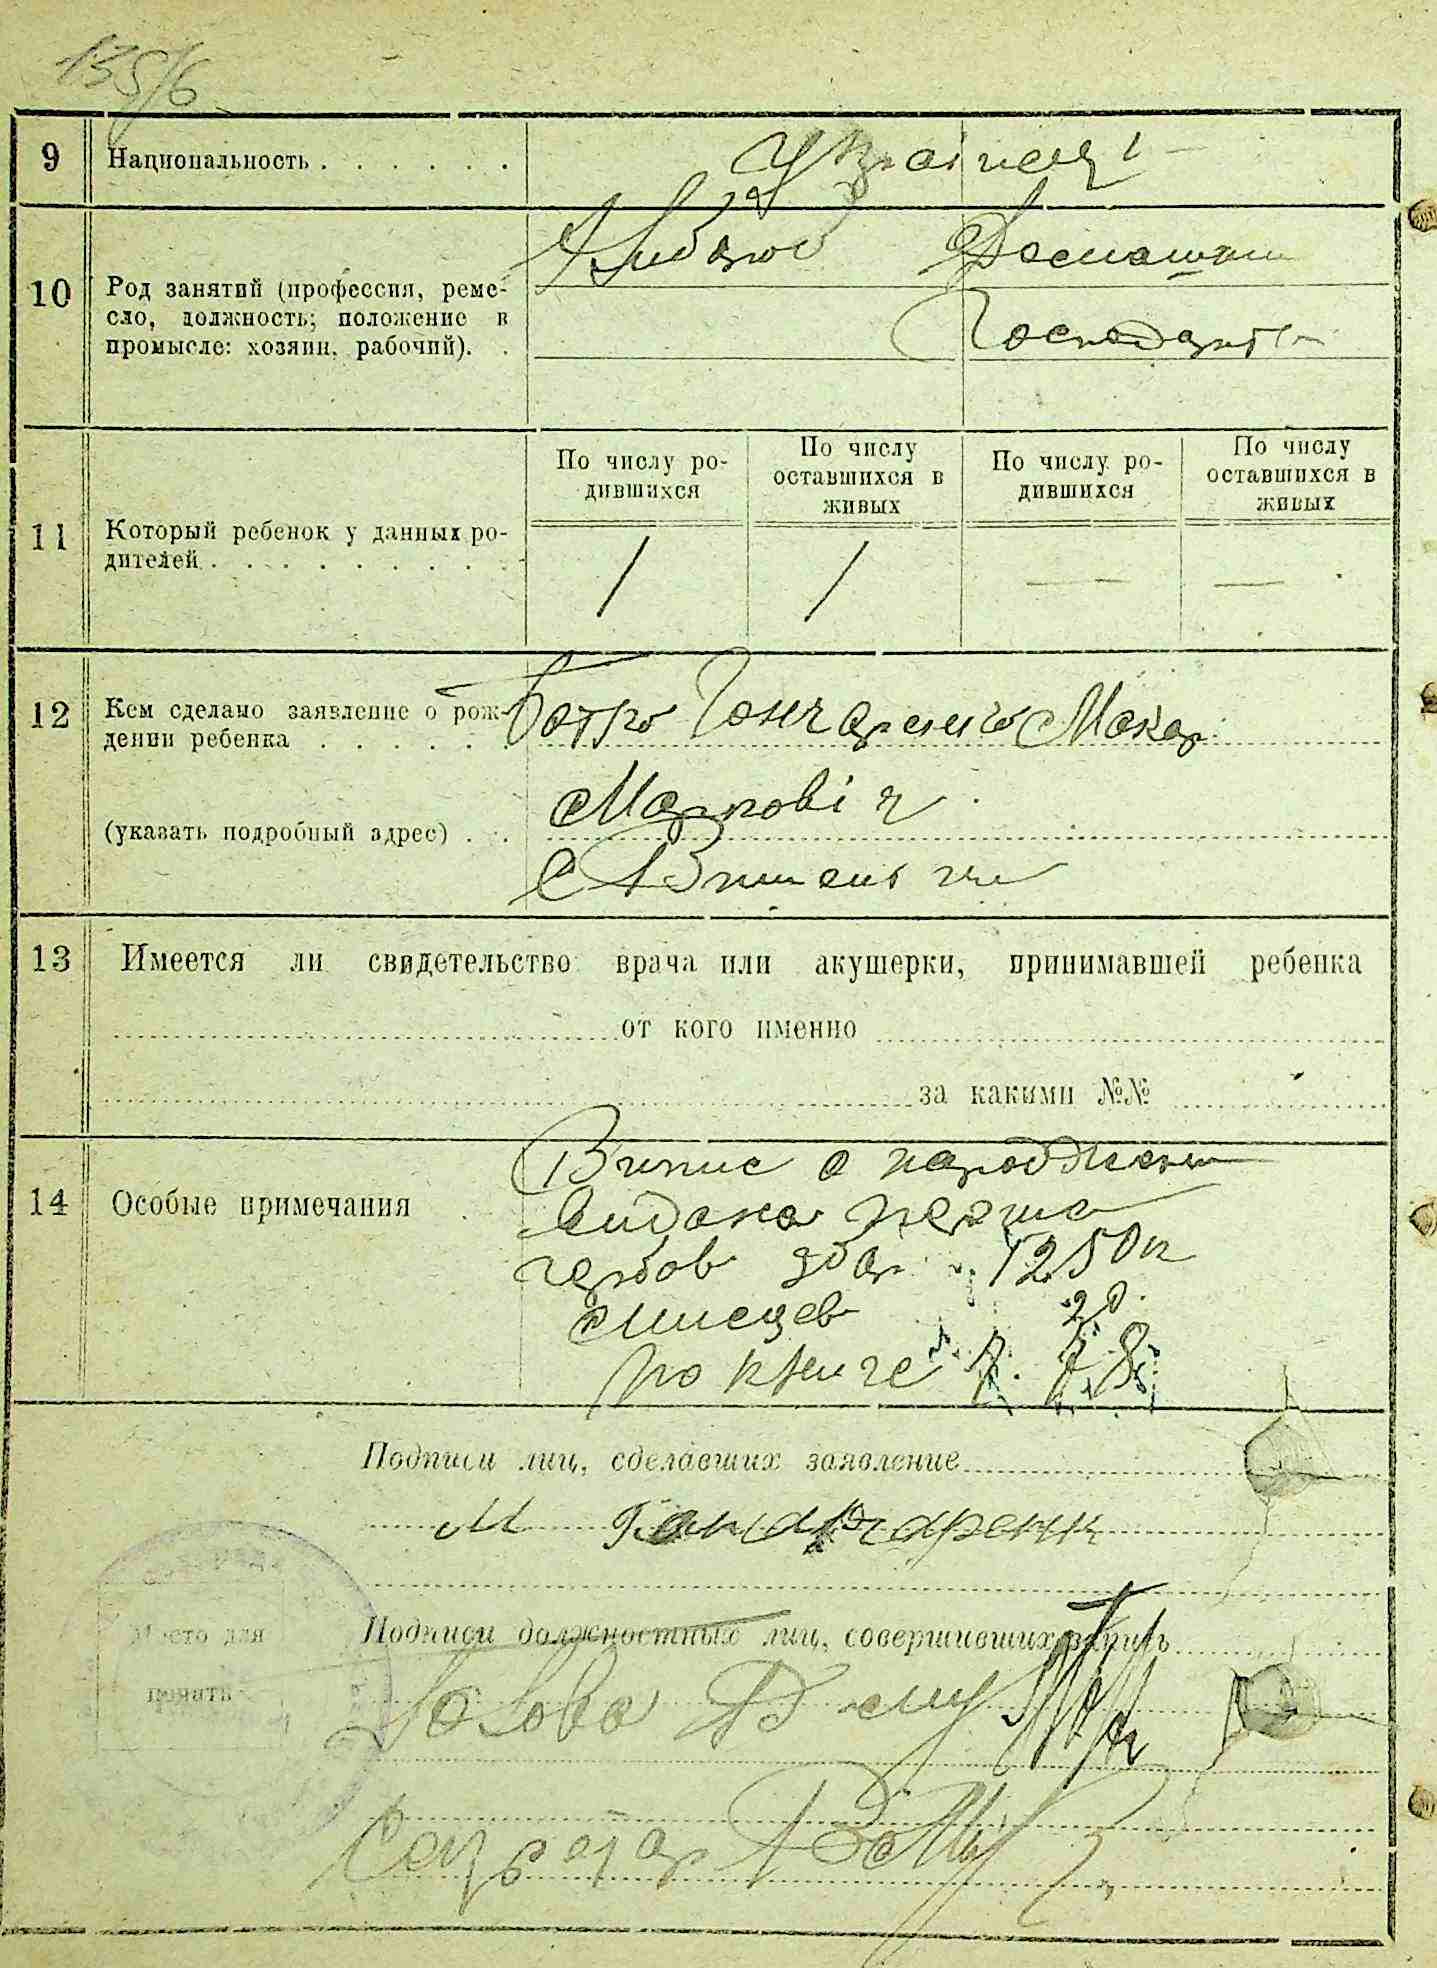 135/6
9 Национальность . . . . . . Українці
10 Род занятий (профессия, реме-
сло, должность; положение в
промысле: хозяин, рабочий). .
Хлібороб Домашни
Господарств
11 Который ребенок у данных ро-
дителей . . . . . . . . .
По числу ро-
дившихся
По числу
оставшихся в
живых
По числу ро-
дившихся
По числу
оставшихся в
живых
1 1 — —
12 Кем сделано заявление о рож-
дении ребенка . . . . . .
Батько Гончаренко Макар
(указать подробный адрес) . .
Маркові ч
С
13 Имеется ли свидетельство врача или акушерки, принимавшей ребенка
от кого именно
за какими №№
14 Особые примечания
Випис о народжени
видана перша
гербов збор 1 250к
мисцев 20
по книге 7. 78
Подписи лиц, сделавших заявление
М Гончаренк
Подписи должностных лиц, совершивших запись
Место для
печати
Голова
Секретар